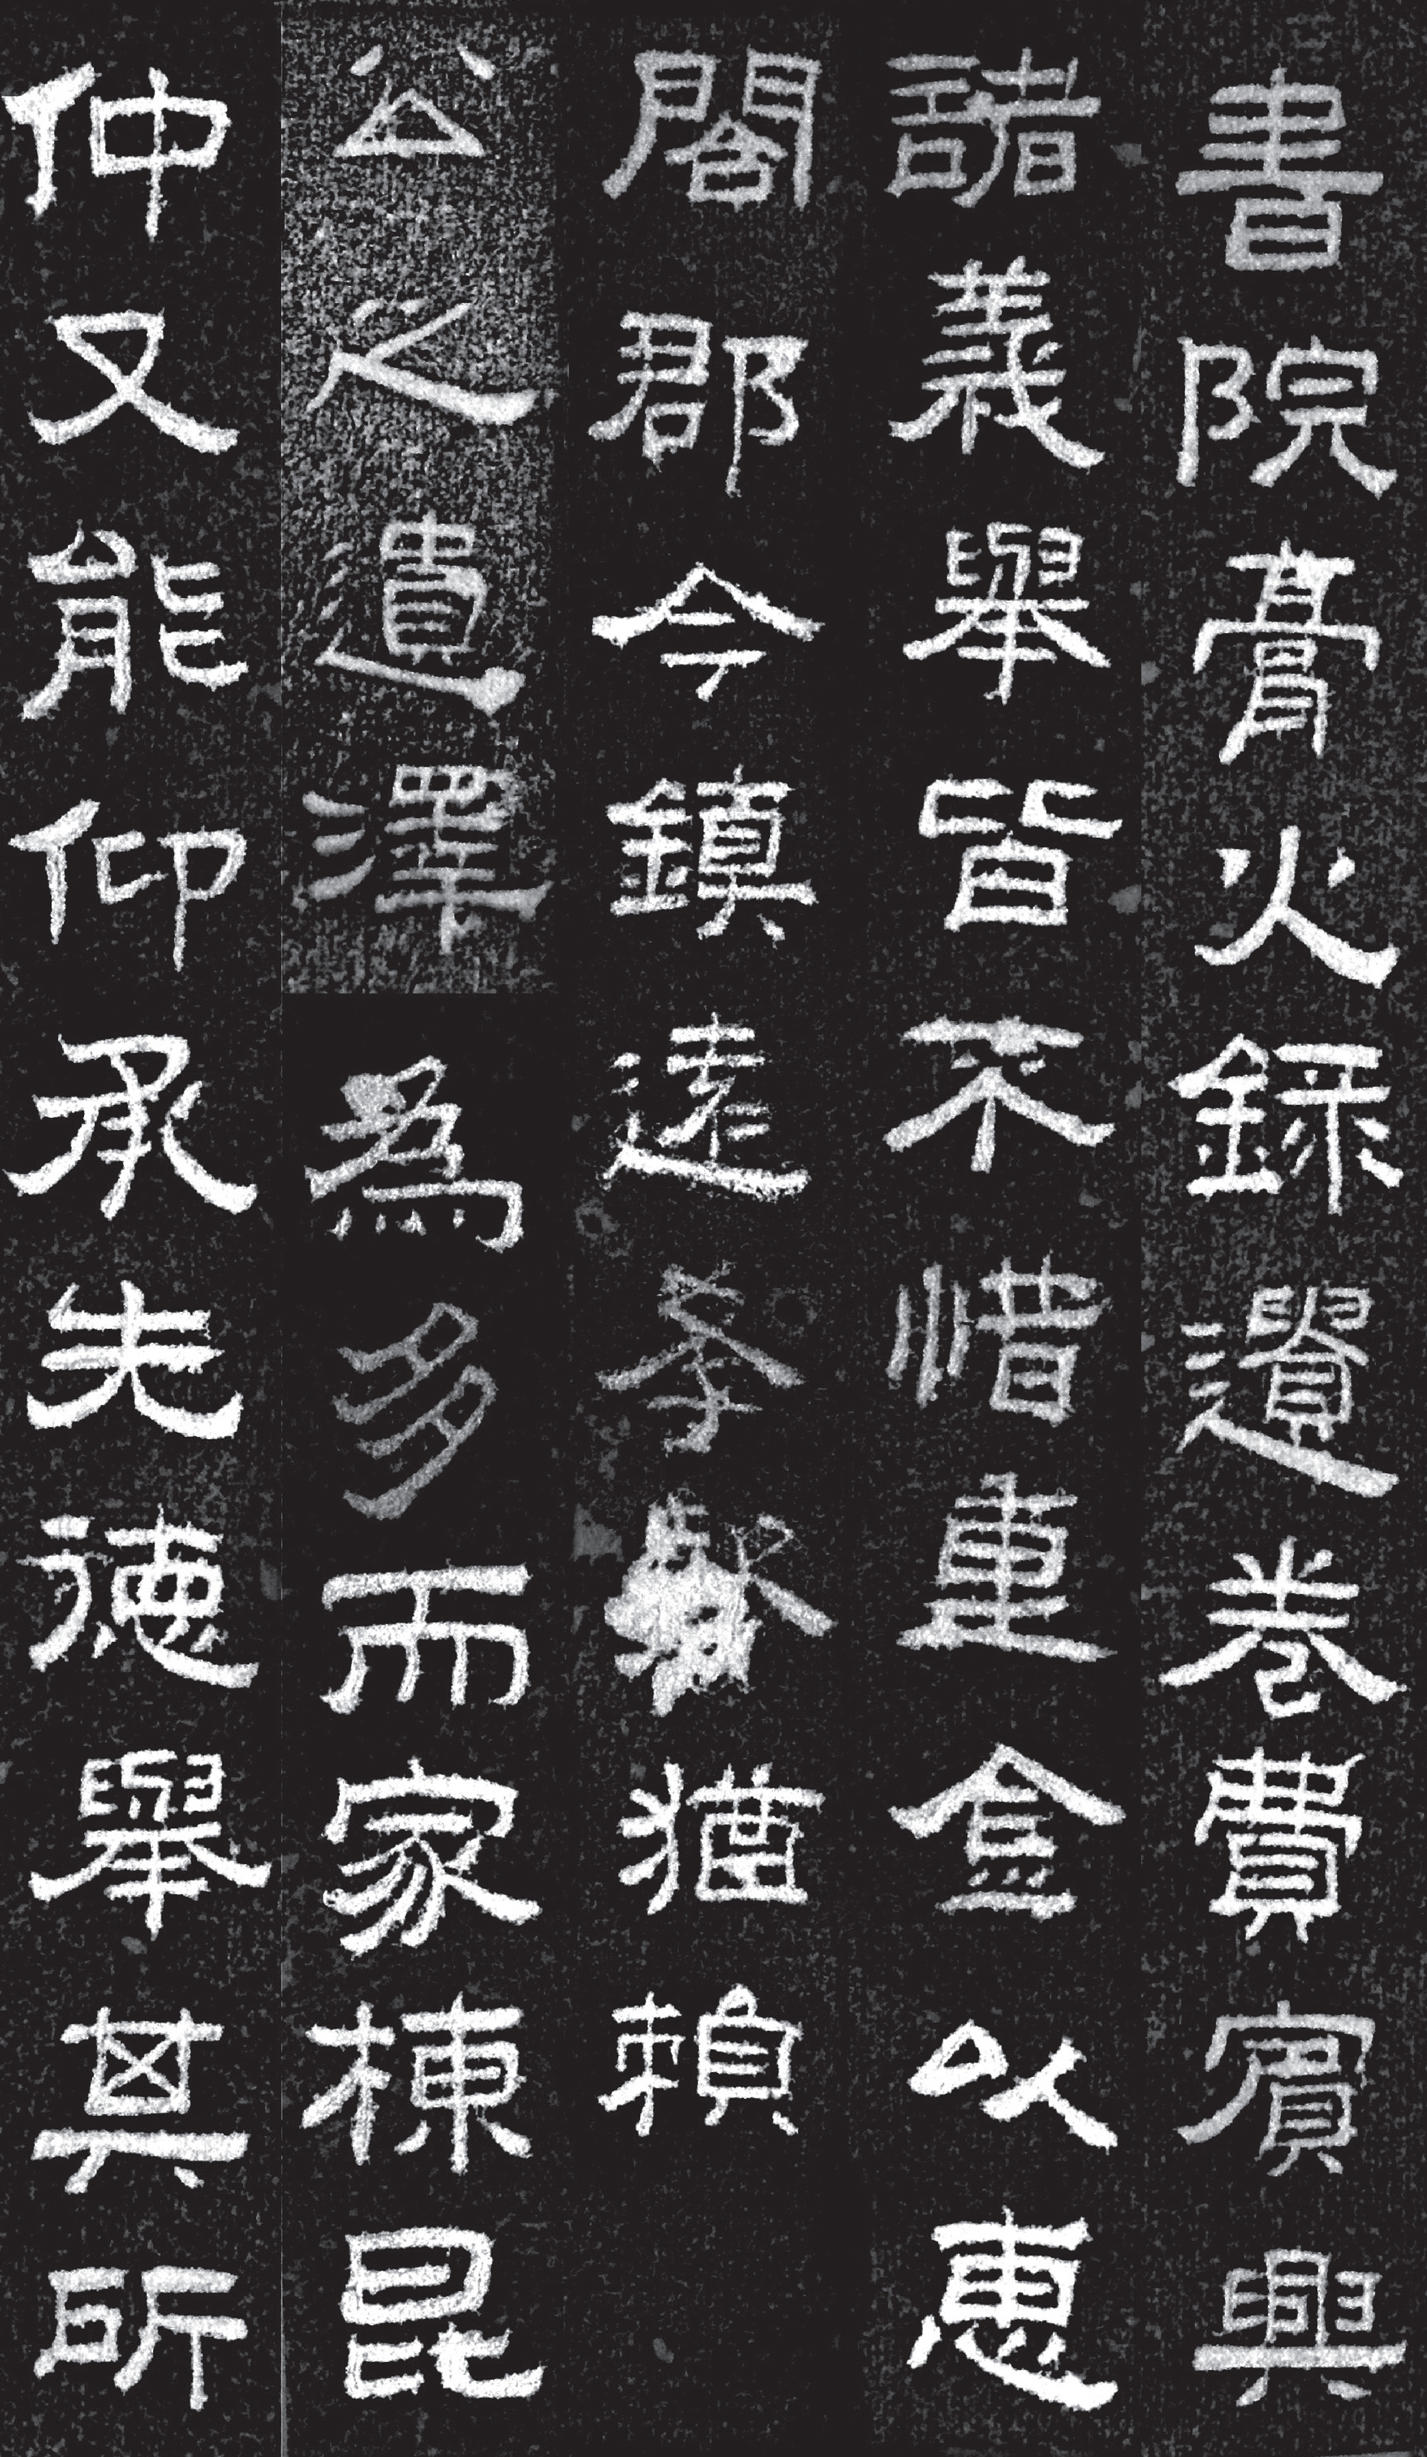 書院膏火錄遺卷費賓興
諸義舉皆不惜重金以惠
閤郡今鎮遠猶賴
公之遺澤為多而家棟昆
仲又能仰承先德舉其所